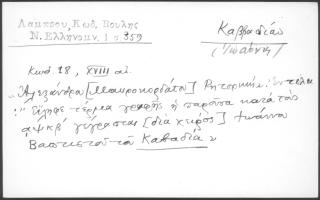 Λαμπρου, Κωδ. Βουλῆς
Ν. Ἑλληνομν. 1 σ. 359
Καββαδίας
(Ἰωάννης)
Κωδ. 18, XVIII αἰ.
"Ἀλεξάνδρου [Μαυροκορδάτου] Ῥητορικὴ.
:" Εἴληφε τέρμα γραφῆς ἡ παροῦσα κατὰ τὸ
αψκβ′ γέγραπται [διὰ χειρὸς] Ἰωάννου
Βαπτιστοῦ τοῦ Καβαδία"